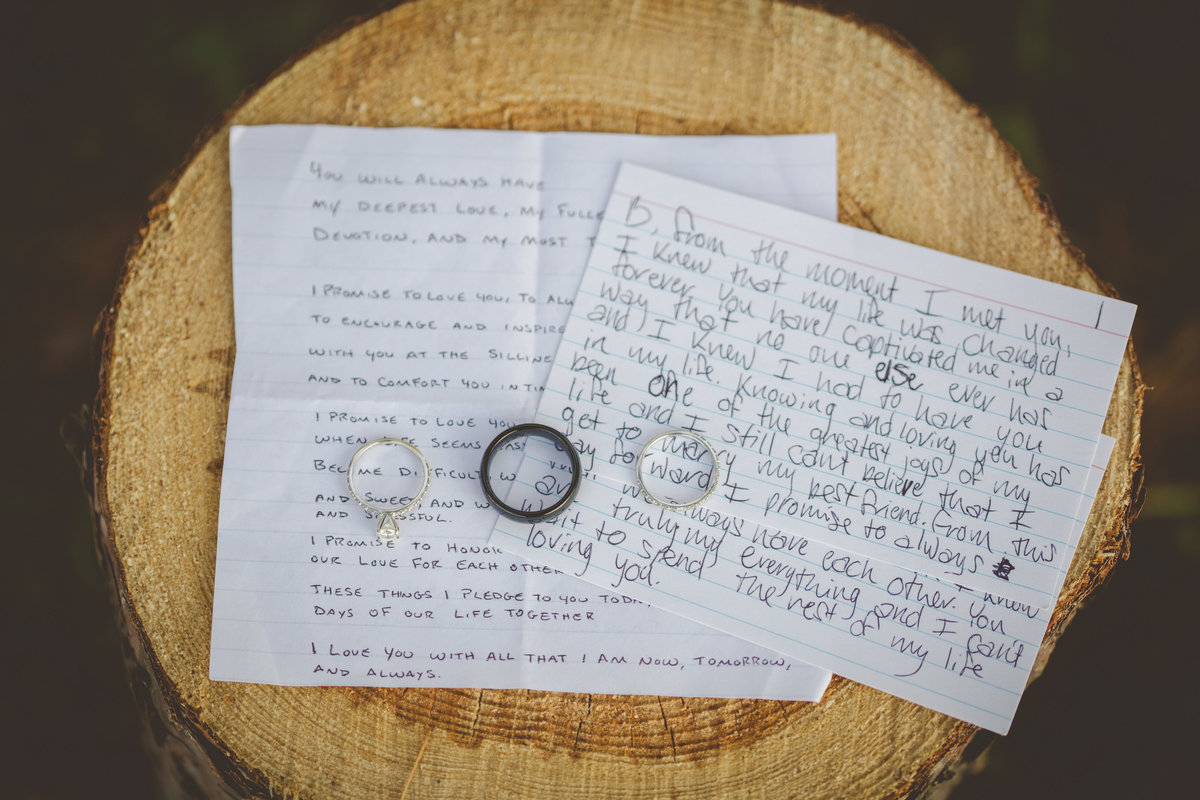 YOU WILL ALWAYS HAVE
MY DEEPEST LOVE, MY FULLE
DEVOTION, AND MY MOST T
I PROMISE TO LOVE YOU, TO ALW
TO ENCOURAGE AND INSPIRE
WITH YOU AT THE SILLINE
AND TO COMFORT YOU IN TIM
I PROMISE TO LOVE YOU
WHEN SEEMS EAS
BECOME DIFFICULT, W
AND SWEET, AND W
AND STRESSFUL.
I PROMISE TO HONOR
OUR LOVE FOR EACH OTHER
THESE THINGS I PLEDGE TO YOU TODAY,
DAYS OF OUR LIFE TOGETHER
I LOVE YOU WITH ALL THAT I AM NOW, TOMORROW,
AND ALWAYS.
1
B, from the moment I met you,
I knew that my life was changed
forever. You have captivated me in a
way that no one else ever has
and I knew I had to have you
in my life. Knowing and loving you has
been one of the greatest joys of my
life and I still cant believe that I
get to marry my best friend. From this
day forward I promise to always
always have each other. You
truly my everything and I can't
wait to spend the rest of my life
loving you.
I know